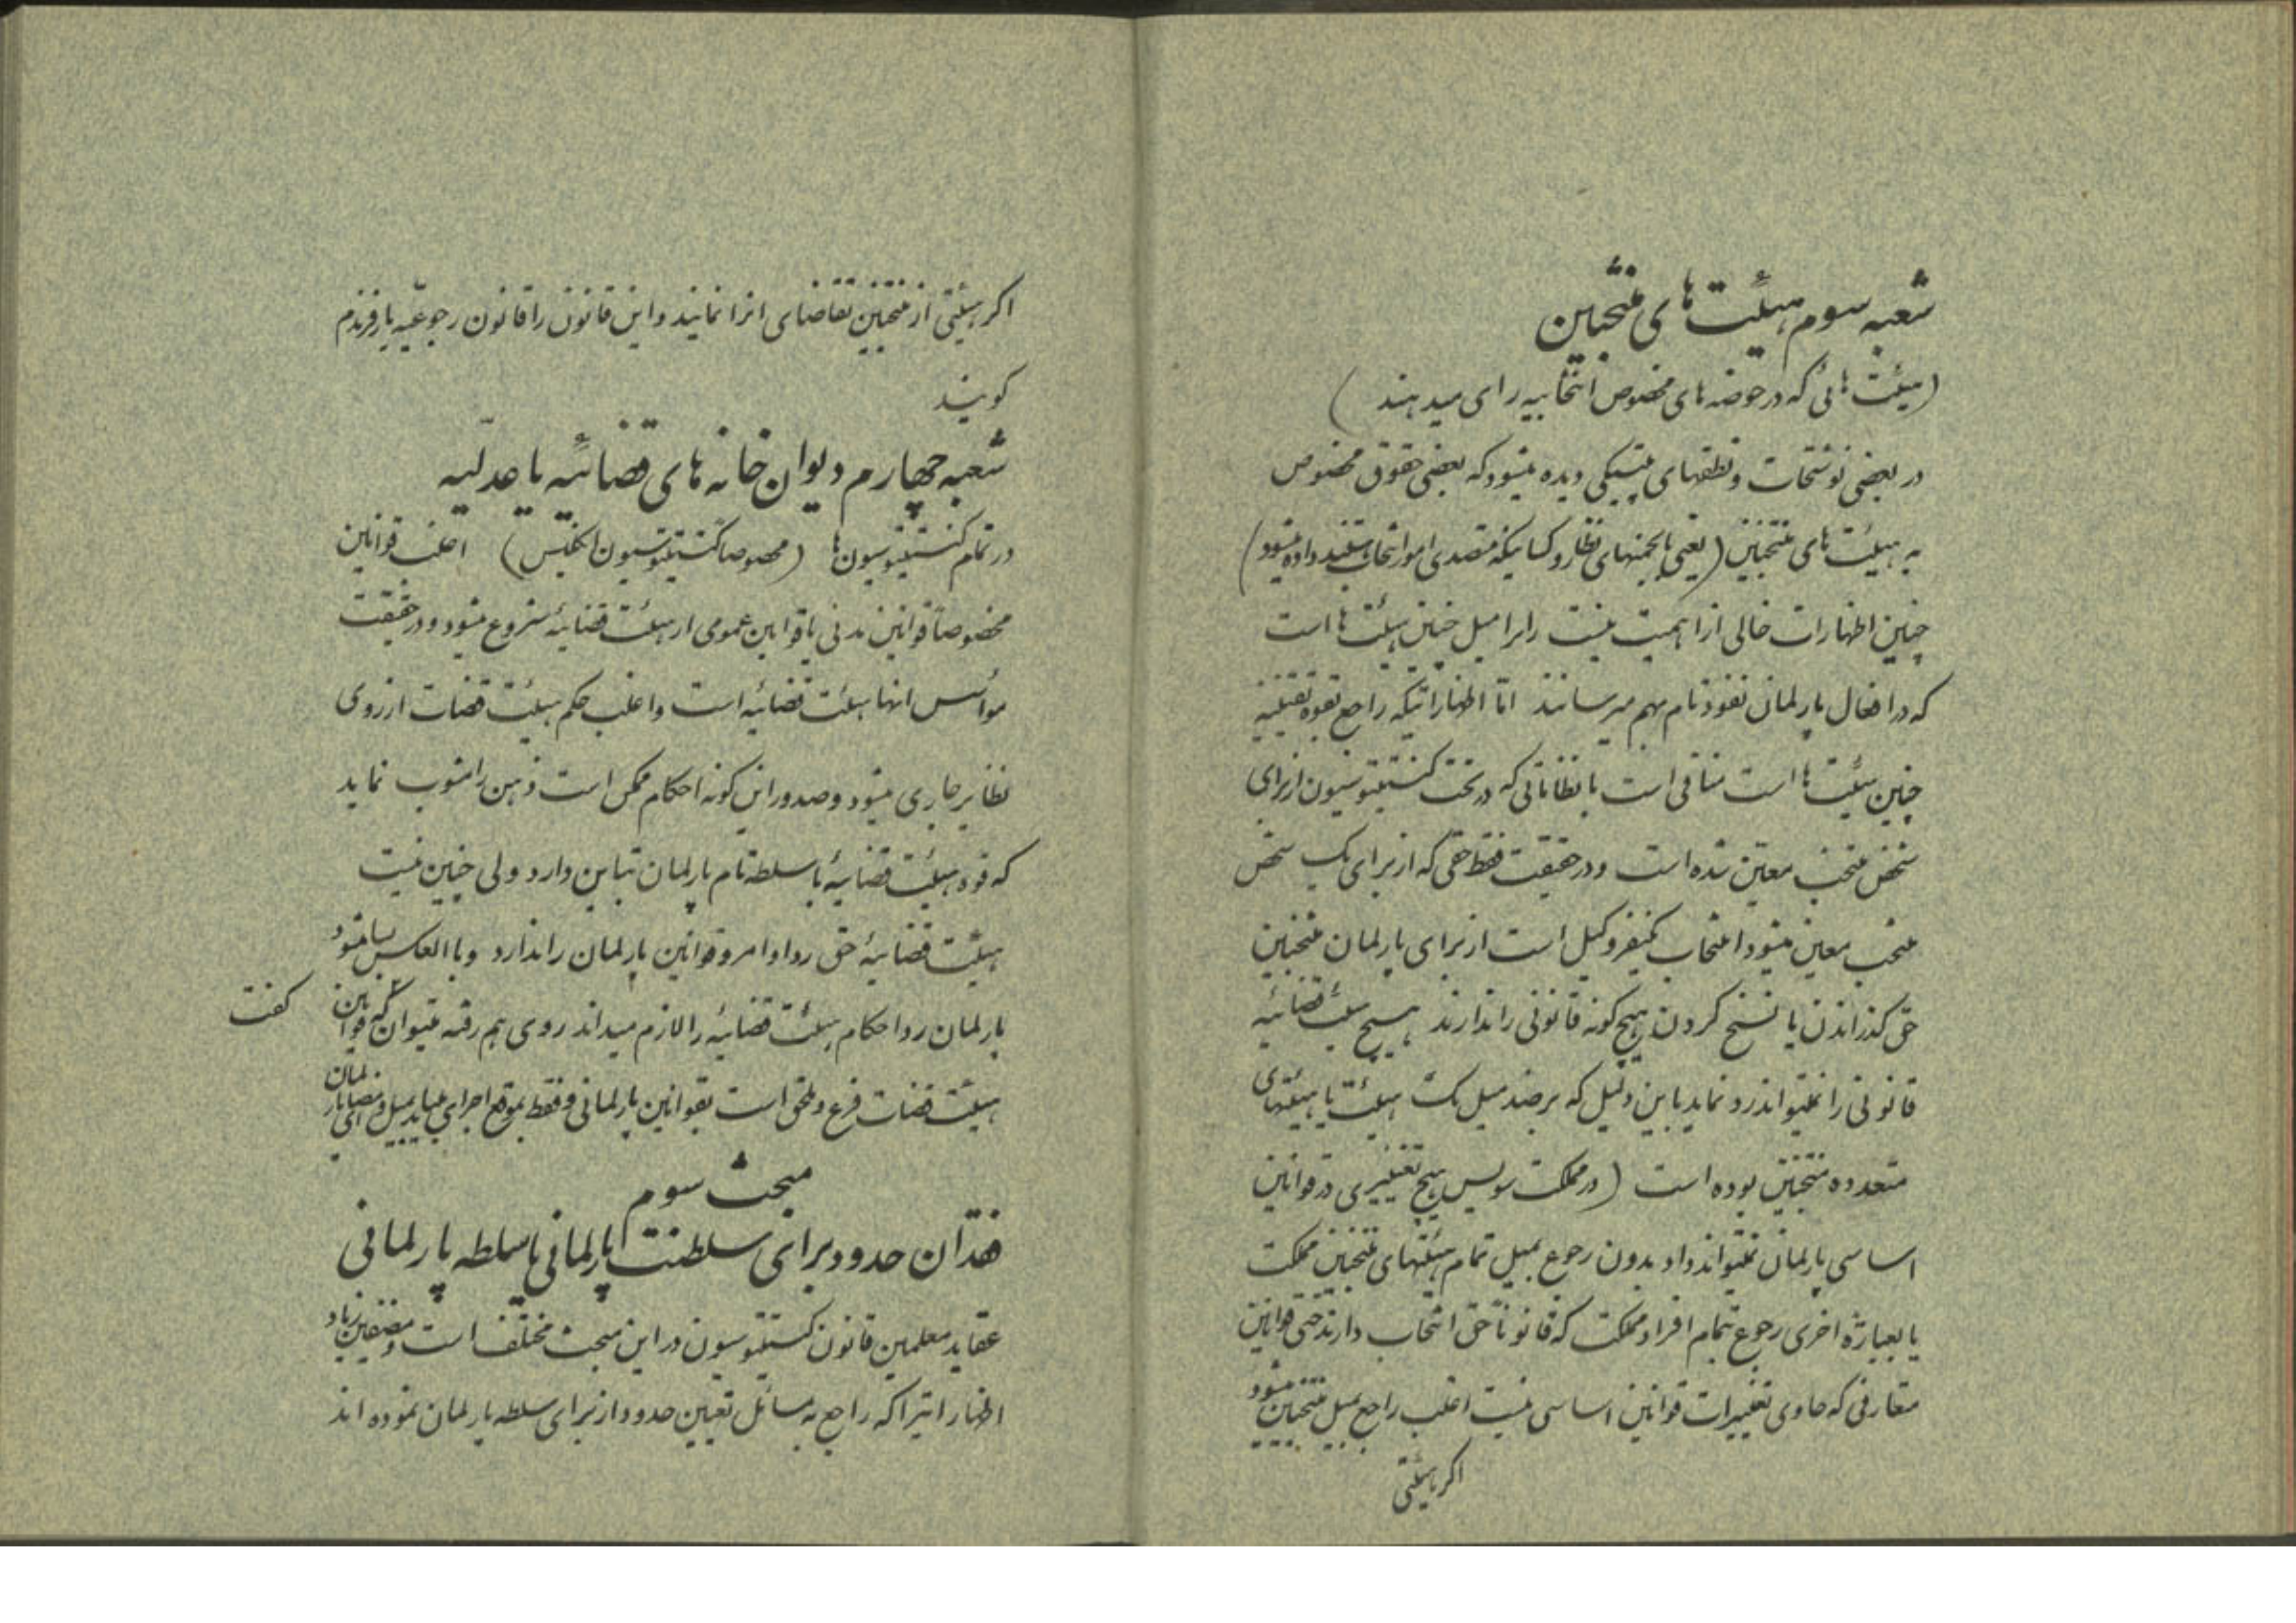 شعبه سوم هیئت های منتخبین
(هیئت هائی که در حوضه های مخصوص انتخابیه رای میدهند)
در بعضی نوشتجات و نطقهای پلتیکی دیده میشود که بعضی حقوق مخصوص
به هیئت های منتخبین (یعنی بانجمنهای نظار و کسانیکه متصدی امور انتخاب هستند داده میشود)
چنین اظهارات خالی از اهمیت نیست زیرا میل چنین هیئت ها است
که در افعال پارلمان نفوذ تام بهم میرسانند امّا اظهاراتیکه راجع بقوه تقنینیه
چنین هیئت ها است منافی است با نظاماتی که در تحت کنستیتوسیون از برای
شخص منتخب معیّن شده است و در حقیقت فقط حقی که از برای یک شخص
منتخب معین میشود انتخاب یکنفر وکیل است از برای پارلمان منتخبین
حق گذراندن یا نسخ کردن هیچ گونه قانونی را ندارند هیچ هیئت قضائیه
قانونی را نمیتواند رد نماید باین دلیل که بر ضد میل یک هیئت یا هیئتهای
متعدده منتخبین بوده است (در مملکت سویس هیچ تغییری در قوانین
اساسی پارلمان نمیتواند داد بدون رجوع بمیل تمام هیئتهای منتخبین مملکت
یا بعبارة اخری رجوع بتمام افراد مملکت که قانوناً حق انتخاب دارند حتی قوانین
متعارفی که حاوی تغییرات قوانین اساسی نیست اغلب راجع بمیل منتخبین میشود
اکر هیئتی
اکر هیئتی از منتخبین تقاضای انرا نمایند و این قانون را قانون رجوعیّه یا رفرندم
کویند
شعبه چهارم دیوان خانه های قضائیه یا عدلیّه
در تمام کنستیتوسیون ها (مخصوصا کنستیتوسیون انکلیس) اغلب قوانین
مخصوصاً قوانین مدنی یا قوانین عمومی از هیئت قضائیه شروع میشود و در حقیقت
موأسس انها هیئت قضائیه است و اغلب حکم هیئت قضات از روی
نظایر جاری میشود و صدور این کونه احکام ممکن است ذهن را مشوب نماید
که قوه هیئت قضائیه با سلطه تام پارلمان تباین دارد ولی چنین نیست
هیئت قضائیه حق رد اوامر و قوانین پارلمان را ندارد و باالعکس بسا میشود
پارلمان رد احکام هیئت قضائیه را لازم میداند روی هم رفته میتوان کفت که قوانین
هیئت قضات فرع و ملحق است بقوانین پارلمانی و فقط بموقع اجرا می اید بمیل و امضای پارلمان
مبحث سوم
فقدان حدود برای سلطنت پارلمانی یا سلطه پارلمانی
عقاید معلمین قانون کنستیتوسیون در این مبحث مختلف است و مصنفین زیاد
اظهاراتیرا که راجع به مسائل تعیین حدود از برای سلطه پارلمان نموده اند